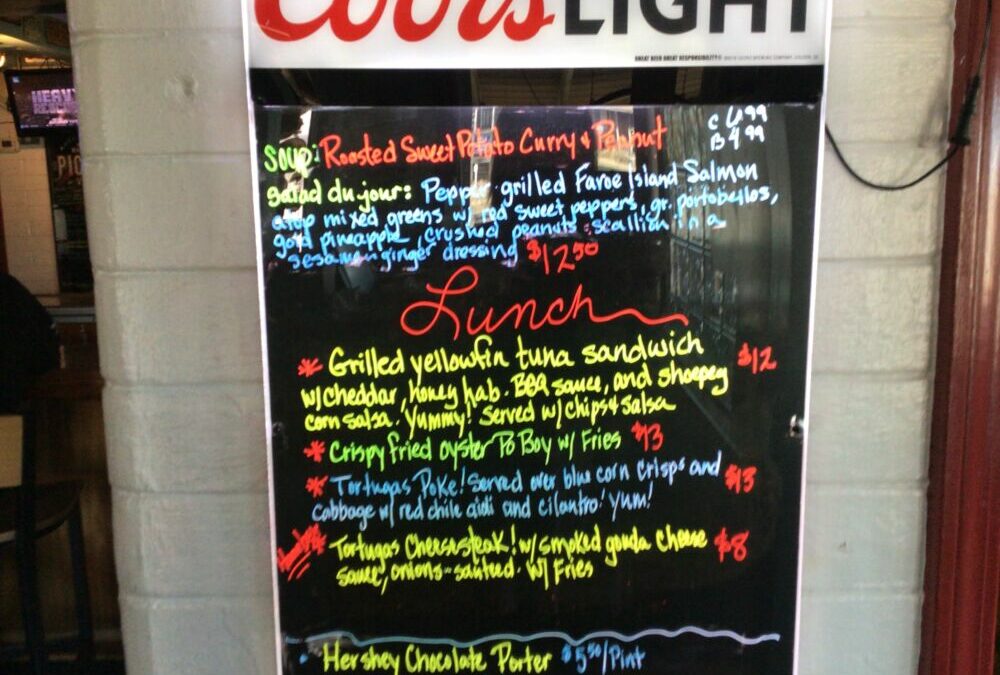 Coors LIGHT
GREAT BEER GREAT RESPONSIBILITY
HEAVY
C 6.99
B 4.99
Soup: Roasted Sweet Potato Curry & Peanut
Salad du jour: Pepper grilled Faroe Island Salmon
atop mixed greens w/ red sweet peppers, gr. portobellos,
gold pineapple, crushed peanuts scallion in a
sesame ginger dressing $12.50
Lunch
* Grilled yellowfin tuna sandwich $12
w/cheddar, honey hab. BBQ sauce, and shoepeg
corn salsa. Yummy! Served w/chips & Salsa
* Crispy fried oyster Po Boy w/ Fries $13
* Tortugas Poke! Served over blue corn crisps and $13
cabbage w/ red chile aioli and cilantro! Yum!
Tortugas Cheesesteak! w/ smoked gouda cheese $8
sauce, onions-sauteed. w/ Fries
Hershey Chocolate Porter $5.50/Pint